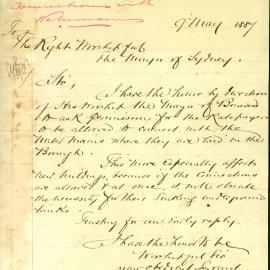 Connections with
Watermains
9 May 1887
To
The Right Worshipful
the Mayor of Sydney.
Sir,
I have the honor by direction
of His Worship the Mayor of
to ask permission for the Ratepayers
to be allowed to connect with the
Water Mains where they are laid in the
Borough.
This more especially affects
New buildings, because if the Connections
are allowed at once it will obviate
the necessity for their Sinking underground
tanks.
Trusting for an early reply.
I have the honor to be
Worshipful Sir
your obedient Servant